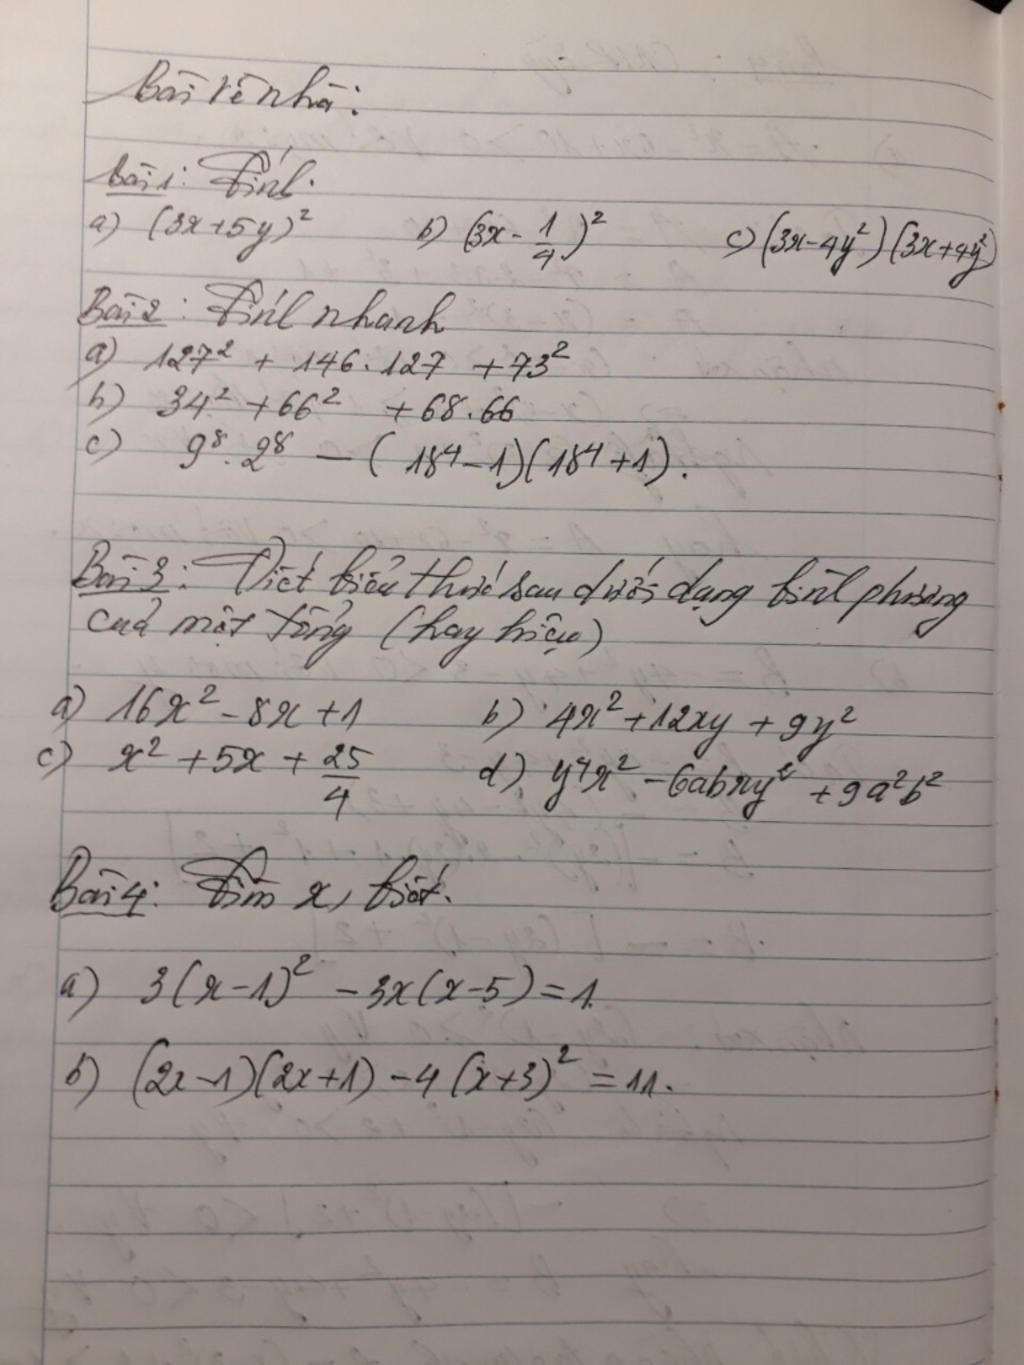 Bài về nhà:
Bài 1: Tính.
a) (3x+5y)² b) (3x - 1/4)² c) (3x-4y²)(3x+4y²)
Bài 2: Tính nhanh
a) 127² + 146.127 + 73²
b) 34² + 66² + 68.66
c) 9⁸.2⁸ - (18⁴-1)(18⁴+1).
Bài 3: Viết biểu thức sau dưới dạng bình phương
của một tổng (hay hiệu)
a) 16x² - 8x + 1 b) 4x² + 12xy + 9y²
c) x² + 5x + 25/4 d) y⁴x² - 6abxy² + 9a²b²
Bài 4: Tìm x, biết.
a) 3(x-1)² - 3x(x-5) = 1.
b) (2x-1)(2x+1) - 4(x+3)² = 11.